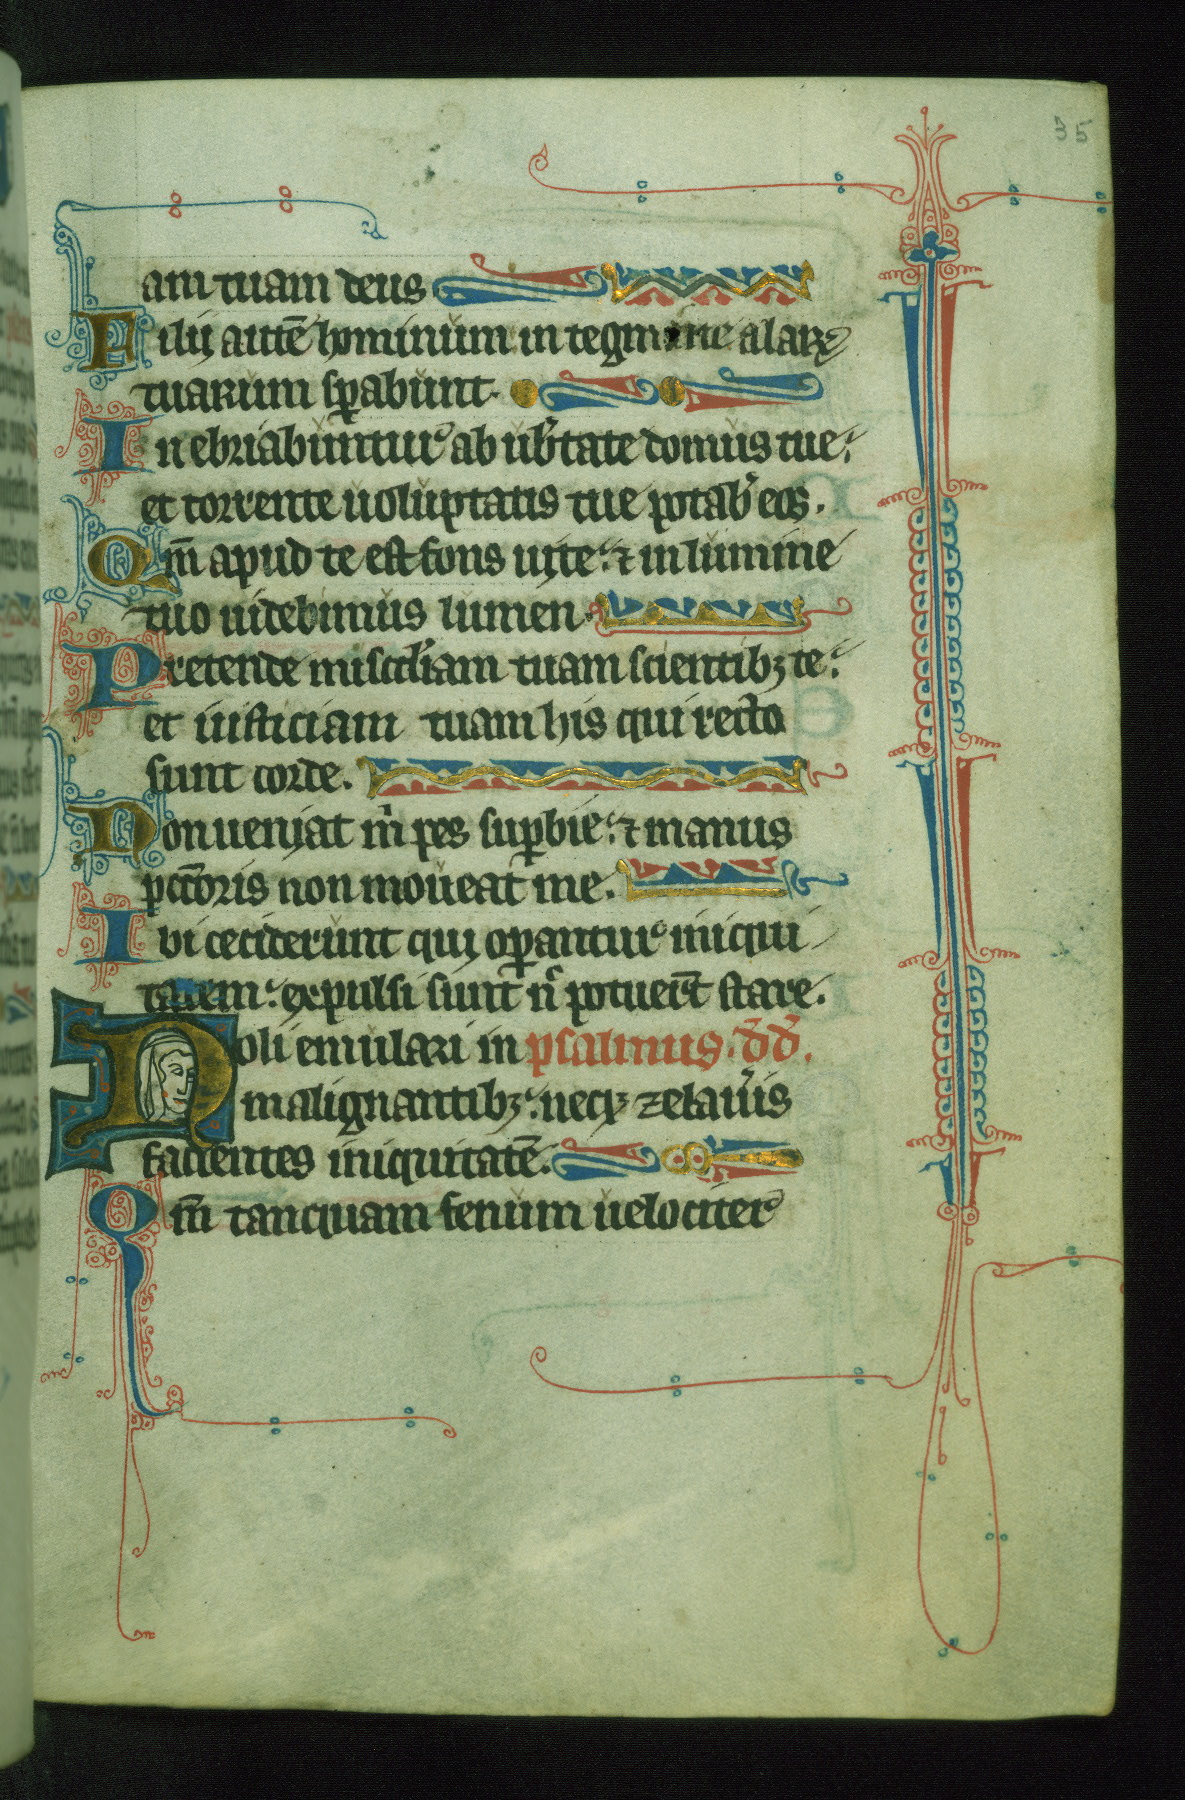 35
am tuam deus
Filij autē hominum in tegmine alarꝝ
tuarum sꝑabunt.
Inebriabuntur ab ub̄tate domus tue:
et torrente uoluptatis tue potab' eos.
Qm̄ apud te est fons uite: ⁊ in lumine
tuo uidebimus lumen.
Pretende mis̄cdiam tuam scientibꝫ te:
et iusticiam tuam his qui recto
sunt corde.
Non ueniat m̄ pes suꝑbie: ⁊ manus
pc̄coris non moueat me.
Ibi ceciderunt qui oꝑantur iniqui
tatem: expulsi sunt n̄ potuer̄t stare.
Noli emulari in psalmus. d̄d̄.
malignantibꝫ: necꝫ zelau'is
facientes iniquitatē.
Qm̄ tanquam fenum uelociter